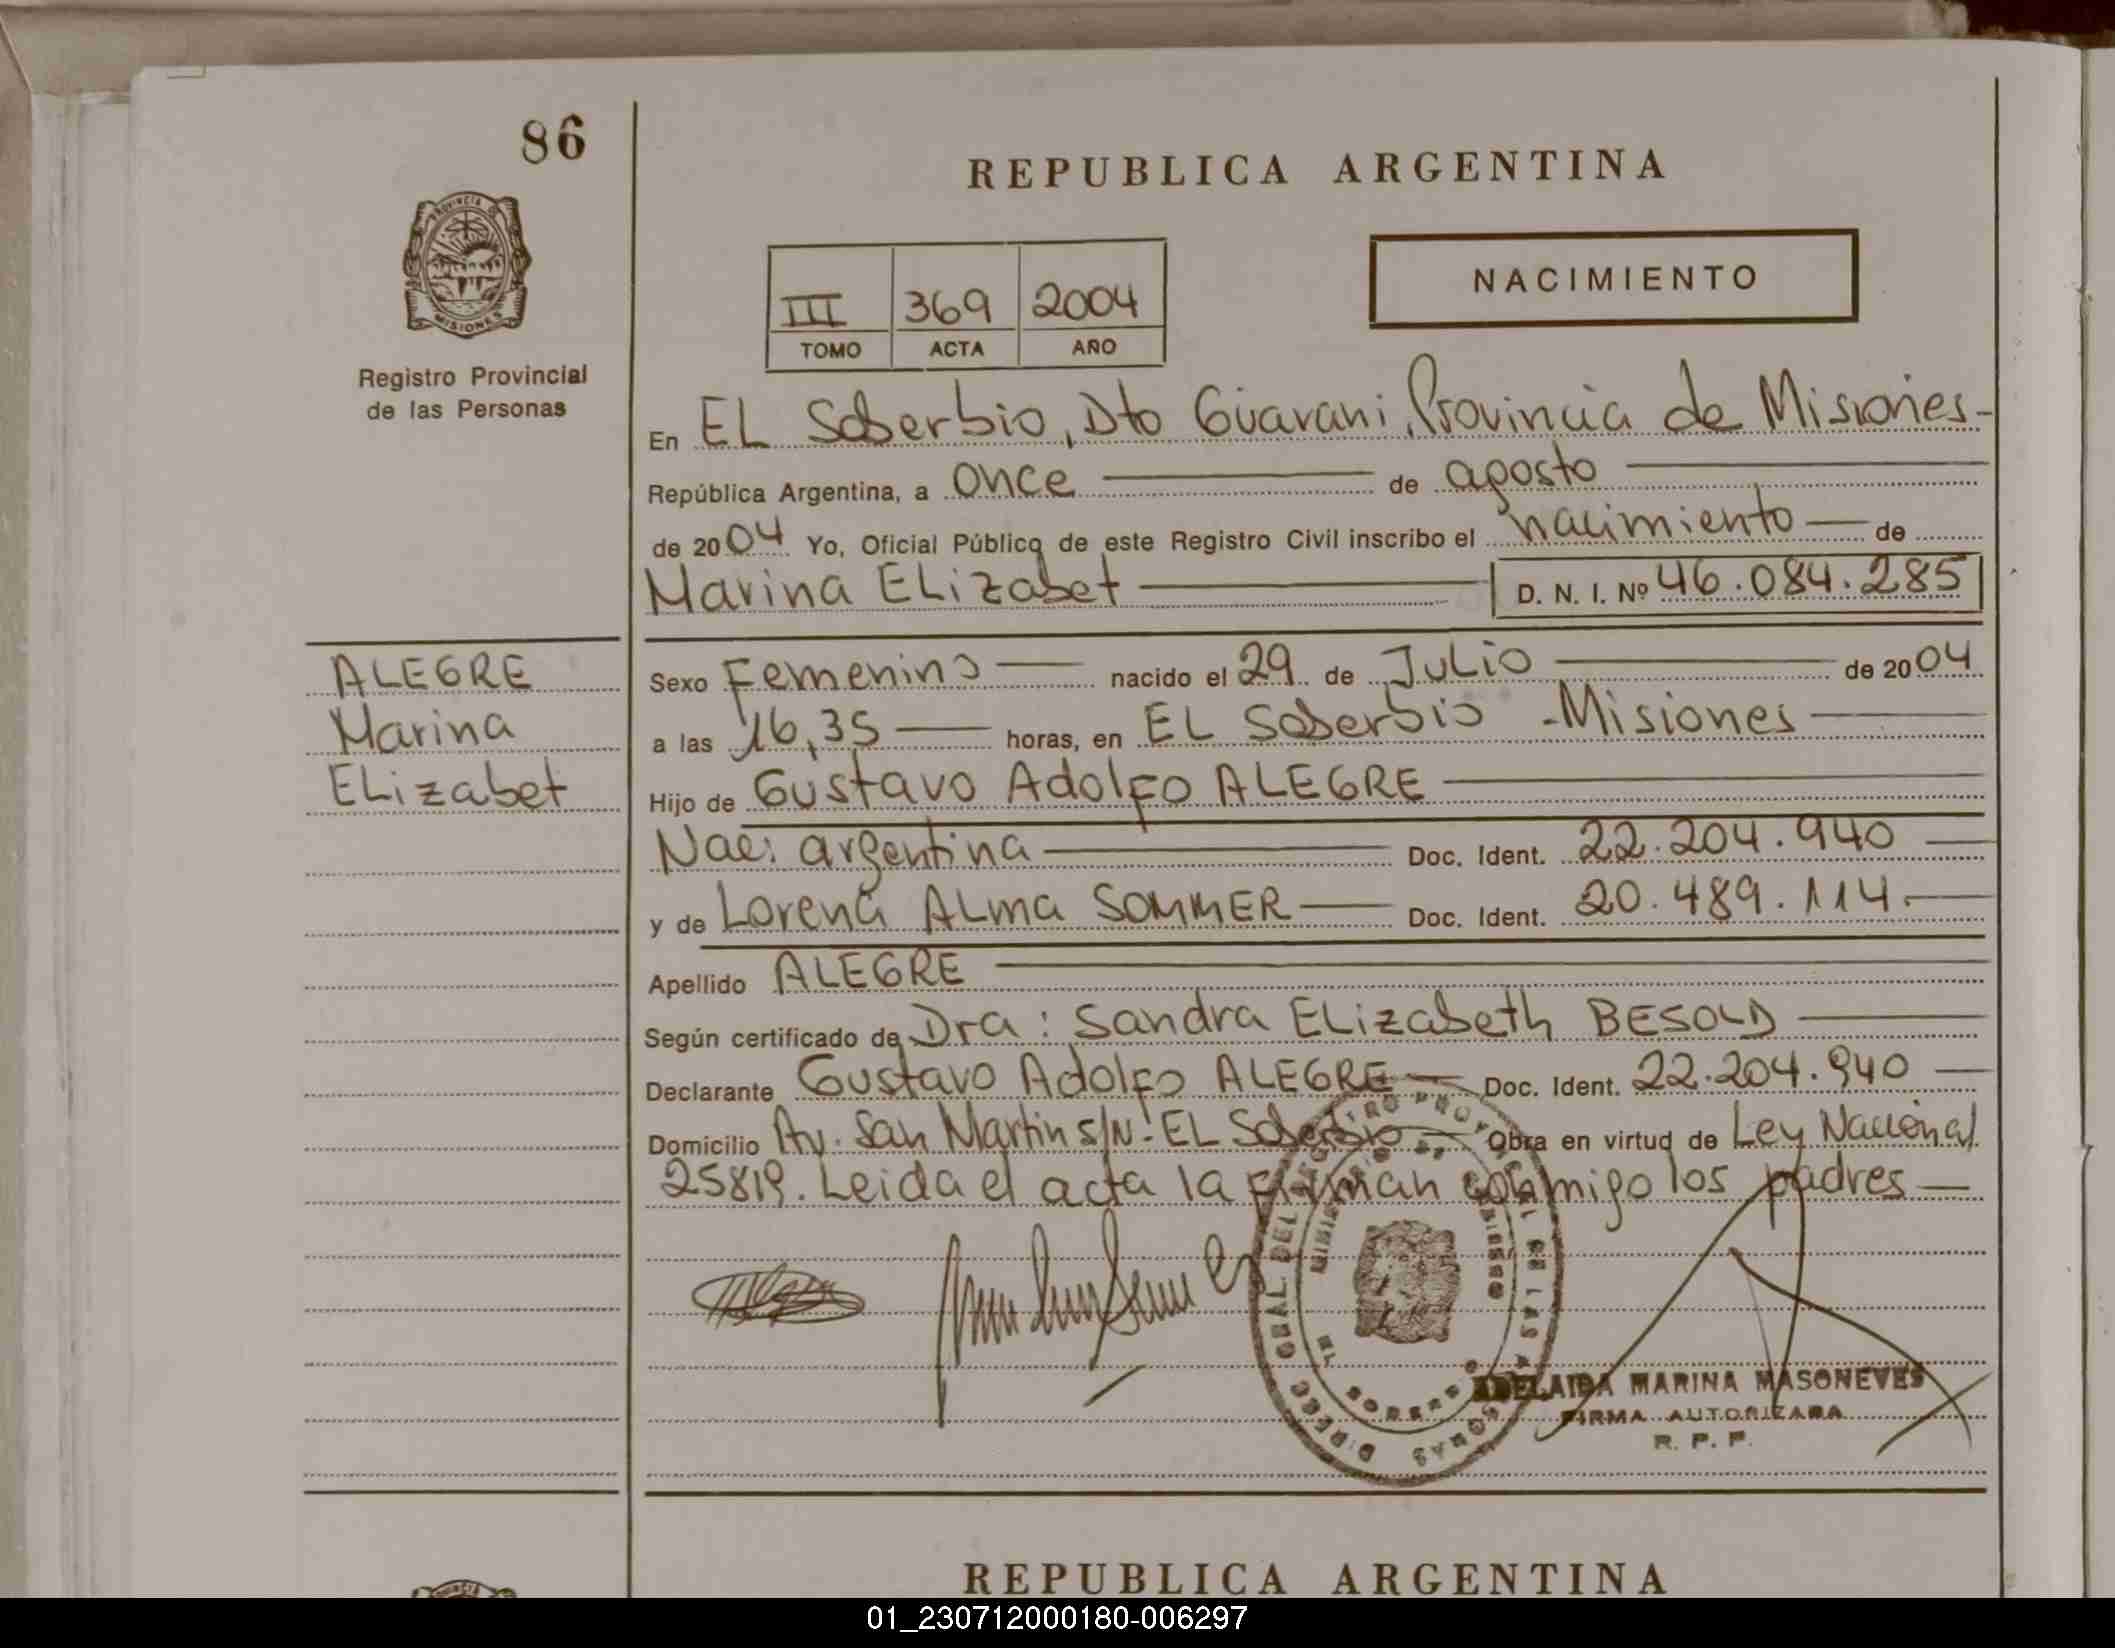 86
REPUBLICA ARGENTINA
PROVINCIA DE
MISIONES
Registro Provincial
de las Personas
III 369 2004
TOMO ACTA AÑO
NACIMIENTO
En EL Soberbio, Dto Guarani, Provincia de Misiones-
República Argentina, a once de agosto
de 2004 Yo, Oficial Público de este Registro Civil inscribo el nacimiento de
Marina ELizabet D. N. I. Nº 46.084.285
ALEGRE
Marina
ELizabet
Sexo Femenino nacido el 29 de JuLio de 2004
a las 16,35 horas, en EL Soberbio -Misiones
Hijo de Gustavo Adolfo ALEGRE
Nac: argentina Doc. Ident. 22.204.940
y de Lorena ALma SOMMER Doc. Ident. 20.489.114.
Apellido ALEGRE
Según certificado de Dra: Sandra ELizabeth BESOLD
Declarante Gustavo Adolfo ALEGRE Doc. Ident. 22.204.940
Domicilio Av. San Martin s/N- EL Soberbio Obra en virtud de Ley Nacional
25819. Leida el acta la firman conmigo los padres
ADELAIDA MARINA MASONEVES
FIRMA AUTORIZADA
R. P. P.
REPUBLICA ARGENTINA
01_230712000180-006297